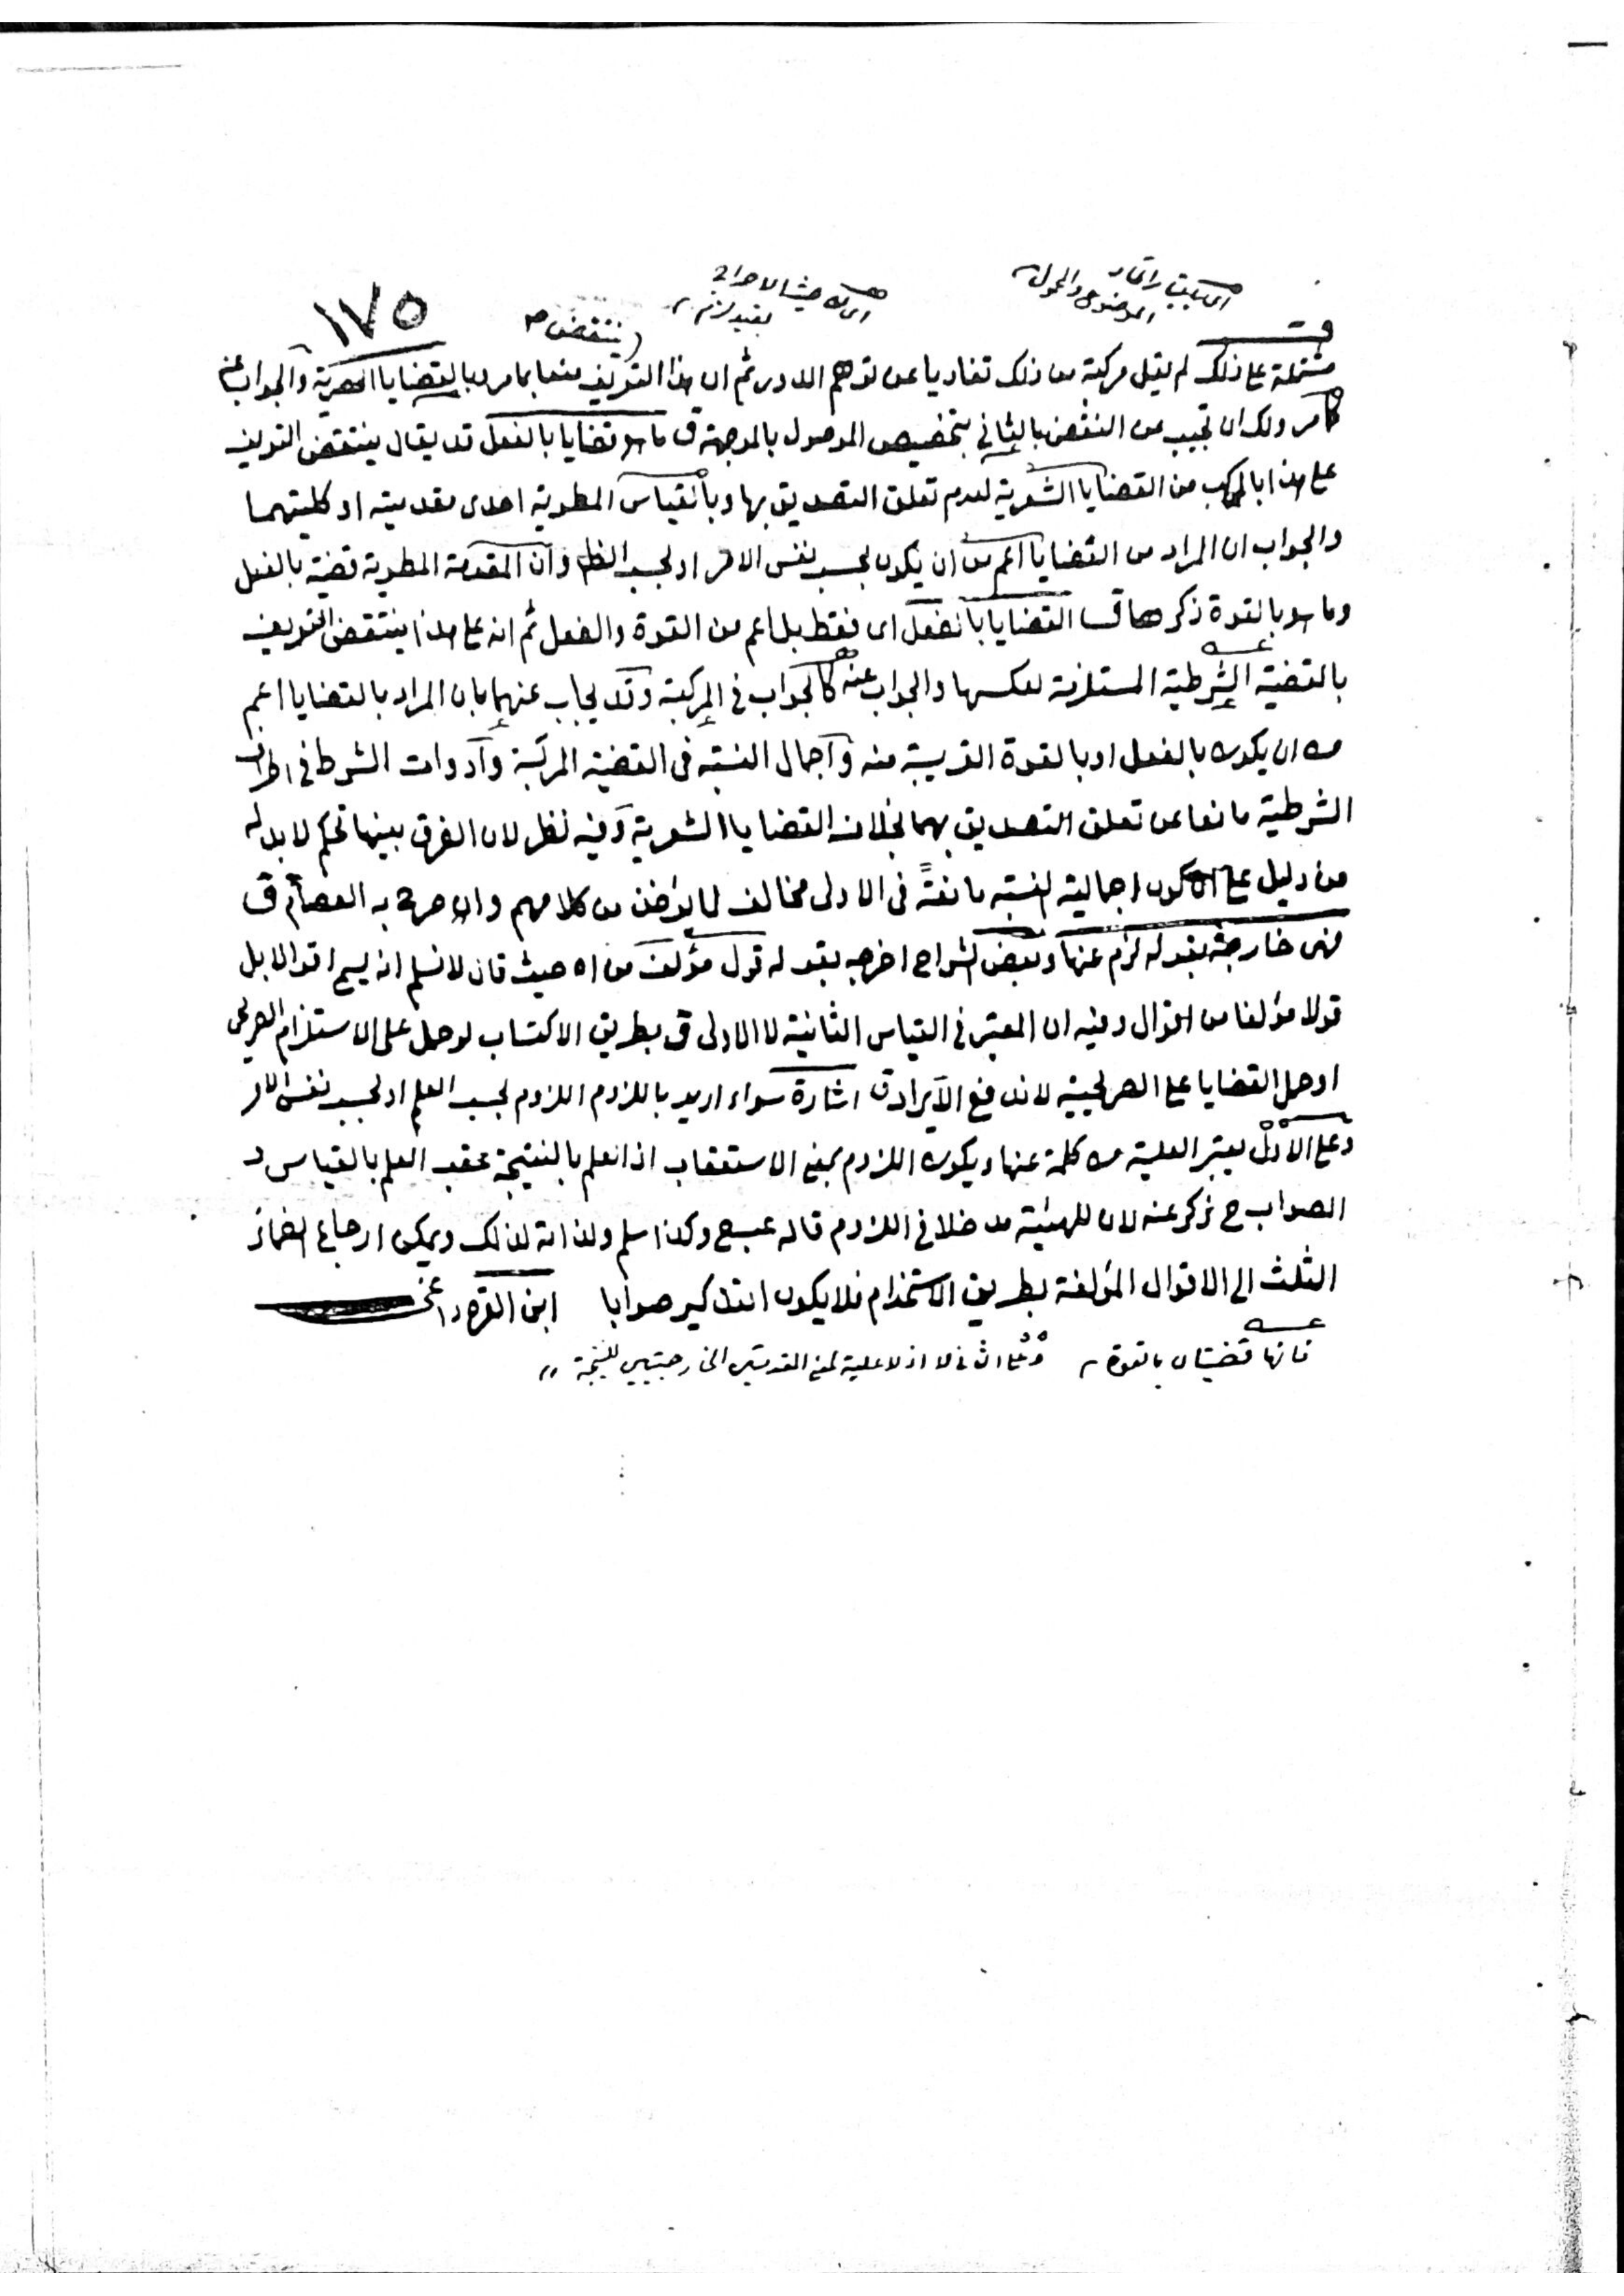 ١٧٥
ينتقض
مشتملة على ذلك لم يقل مركبة من ذلك تفاديا عن توهم الدور ثم ان هذا التعريف منعا بما مر وبالقضايا والجواب عنه
كما مر ولك ان تجيب عن النقض بالثاني بتخصيص الموصول بالموجهة ق ما هو قضايا بالفعل قد يقال ينتقض التعريف
على هذا بالمركب من القضايا الشعرية لعدم تعلق التصديق بها وبالقياس المطوية احدى مقدمتيه او كلتيهما
والجواب ان المراد من القضايا اعم من ان يكون بحسب نفس الامر او بحسب الظاهر وان المقدمة المطوية قضية بالفعل
وما هو بالقوة ذكرها ق القضايا بالفعل اى فقط بل اعم من القوة والفعل ثم انه على هذا ينتقض التعريف
بالقضية الشرطية المستلزمة لعكسها والجواب عنه كالجواب فى المركبة وقد يجاب عنهما بان المراد بالقضايا اعم
من ان يكون بالفعل او بالقوة القريبة منه واجمال النسبة فى القضية المركبة وادوات الشرط فى اطراف
الشرطية مانعا عن تعلق التصديق بهما بخلاف القضايا الشعرية وفيه نظر لان الفرق بينهما تحكم لا بد له
من دليل على ان كون اجمالية النسبة مانعةً فى الاولى مخالف لما يؤخذ من كلامهم وان صرح به العصام ق
فهى خارجة بقوله لزم عنها وبعض الشراح اخرجه بقوله قول مؤلف من اه حيث قال لا نسلم انه يسمى اقوالا بل
قولا مؤلفا من اقوال وفيه ان المعتبر فى القياس الثانية لا الاولى ق بطريق الاكتساب لو حمل على الاستلزام الصريحى
او حمل القضايا على الصريحية لاندفع الايراد ق اشارة سواء اريد باللزوم اللزوم بحسب العلم او بحسب نفس الامر
وعلى الاول يعتبر العلية من كلمة عنها ويكون اللزوم بمعنى الاستعقاب اذ العلم بالنتيجة عقب العلم بالقياس و
الصواب ح ذكر عنه لان للهيئة مدخلا فى اللزوم قاله عبـح وكذا سلم ولذاته لذلك ويمكن ارجاع الضمائر
الثلث الى الاقوال المؤلفة بطريق الاستخدام فلا يكون التذكير صوابا ابن القره داغى
فانها قضيتان بالقوة وعلى الثانى لا اذ لا علية لمعنى المقدمتين الخارجيتين للنتيجة